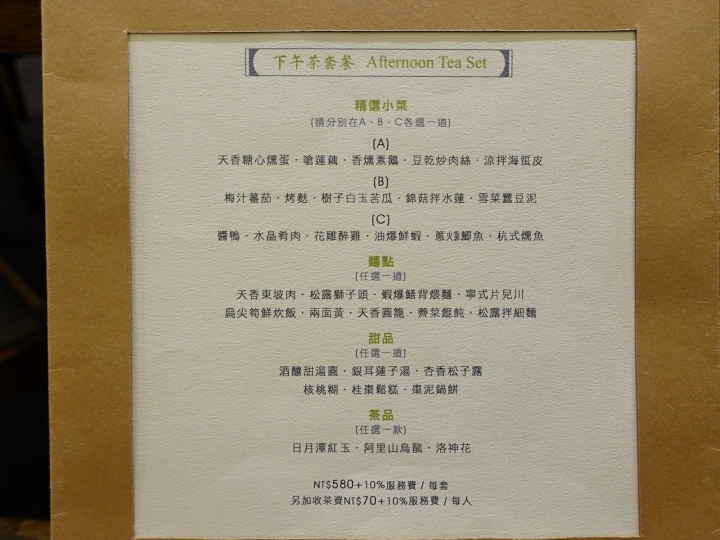 下午茶套餐 Afternoon Tea Set
精選小菜
(請分別在A、B、C各選一道)
(A)
天香糖心燻蛋・嗆蓮藕・香燻素鵝・豆乾炒肉絲・涼拌海蜇皮
(B)
梅汁蕃茄・烤麩・樹子白玉苦瓜・錦菇拌水蓮・雪菜蠶豆泥
(C)
醬鴨・水晶肴肉・花雕醉雞・油爆鮮蝦・蔥㸆鯽魚・杭式燻魚
麵點
(任選一道)
天香東坡肉・松露獅子頭・蝦爆鱔背煨麵・寧式片兒川
扁尖筍鮮炊飯・兩面黃・天香圓籠・薺菜餛飩・松露拌細麵
甜品
(任選一道)
酒釀甜湯圓・銀耳蓮子湯・杏香松子露
核桃糊・桂棗鬆糕・棗泥鍋餅
茶品
(任選一款)
日月潭紅玉・阿里山烏龍・洛神花
NT$580+10%服務費 / 每套
另加收茶資NT$70+10%服務費 / 每人